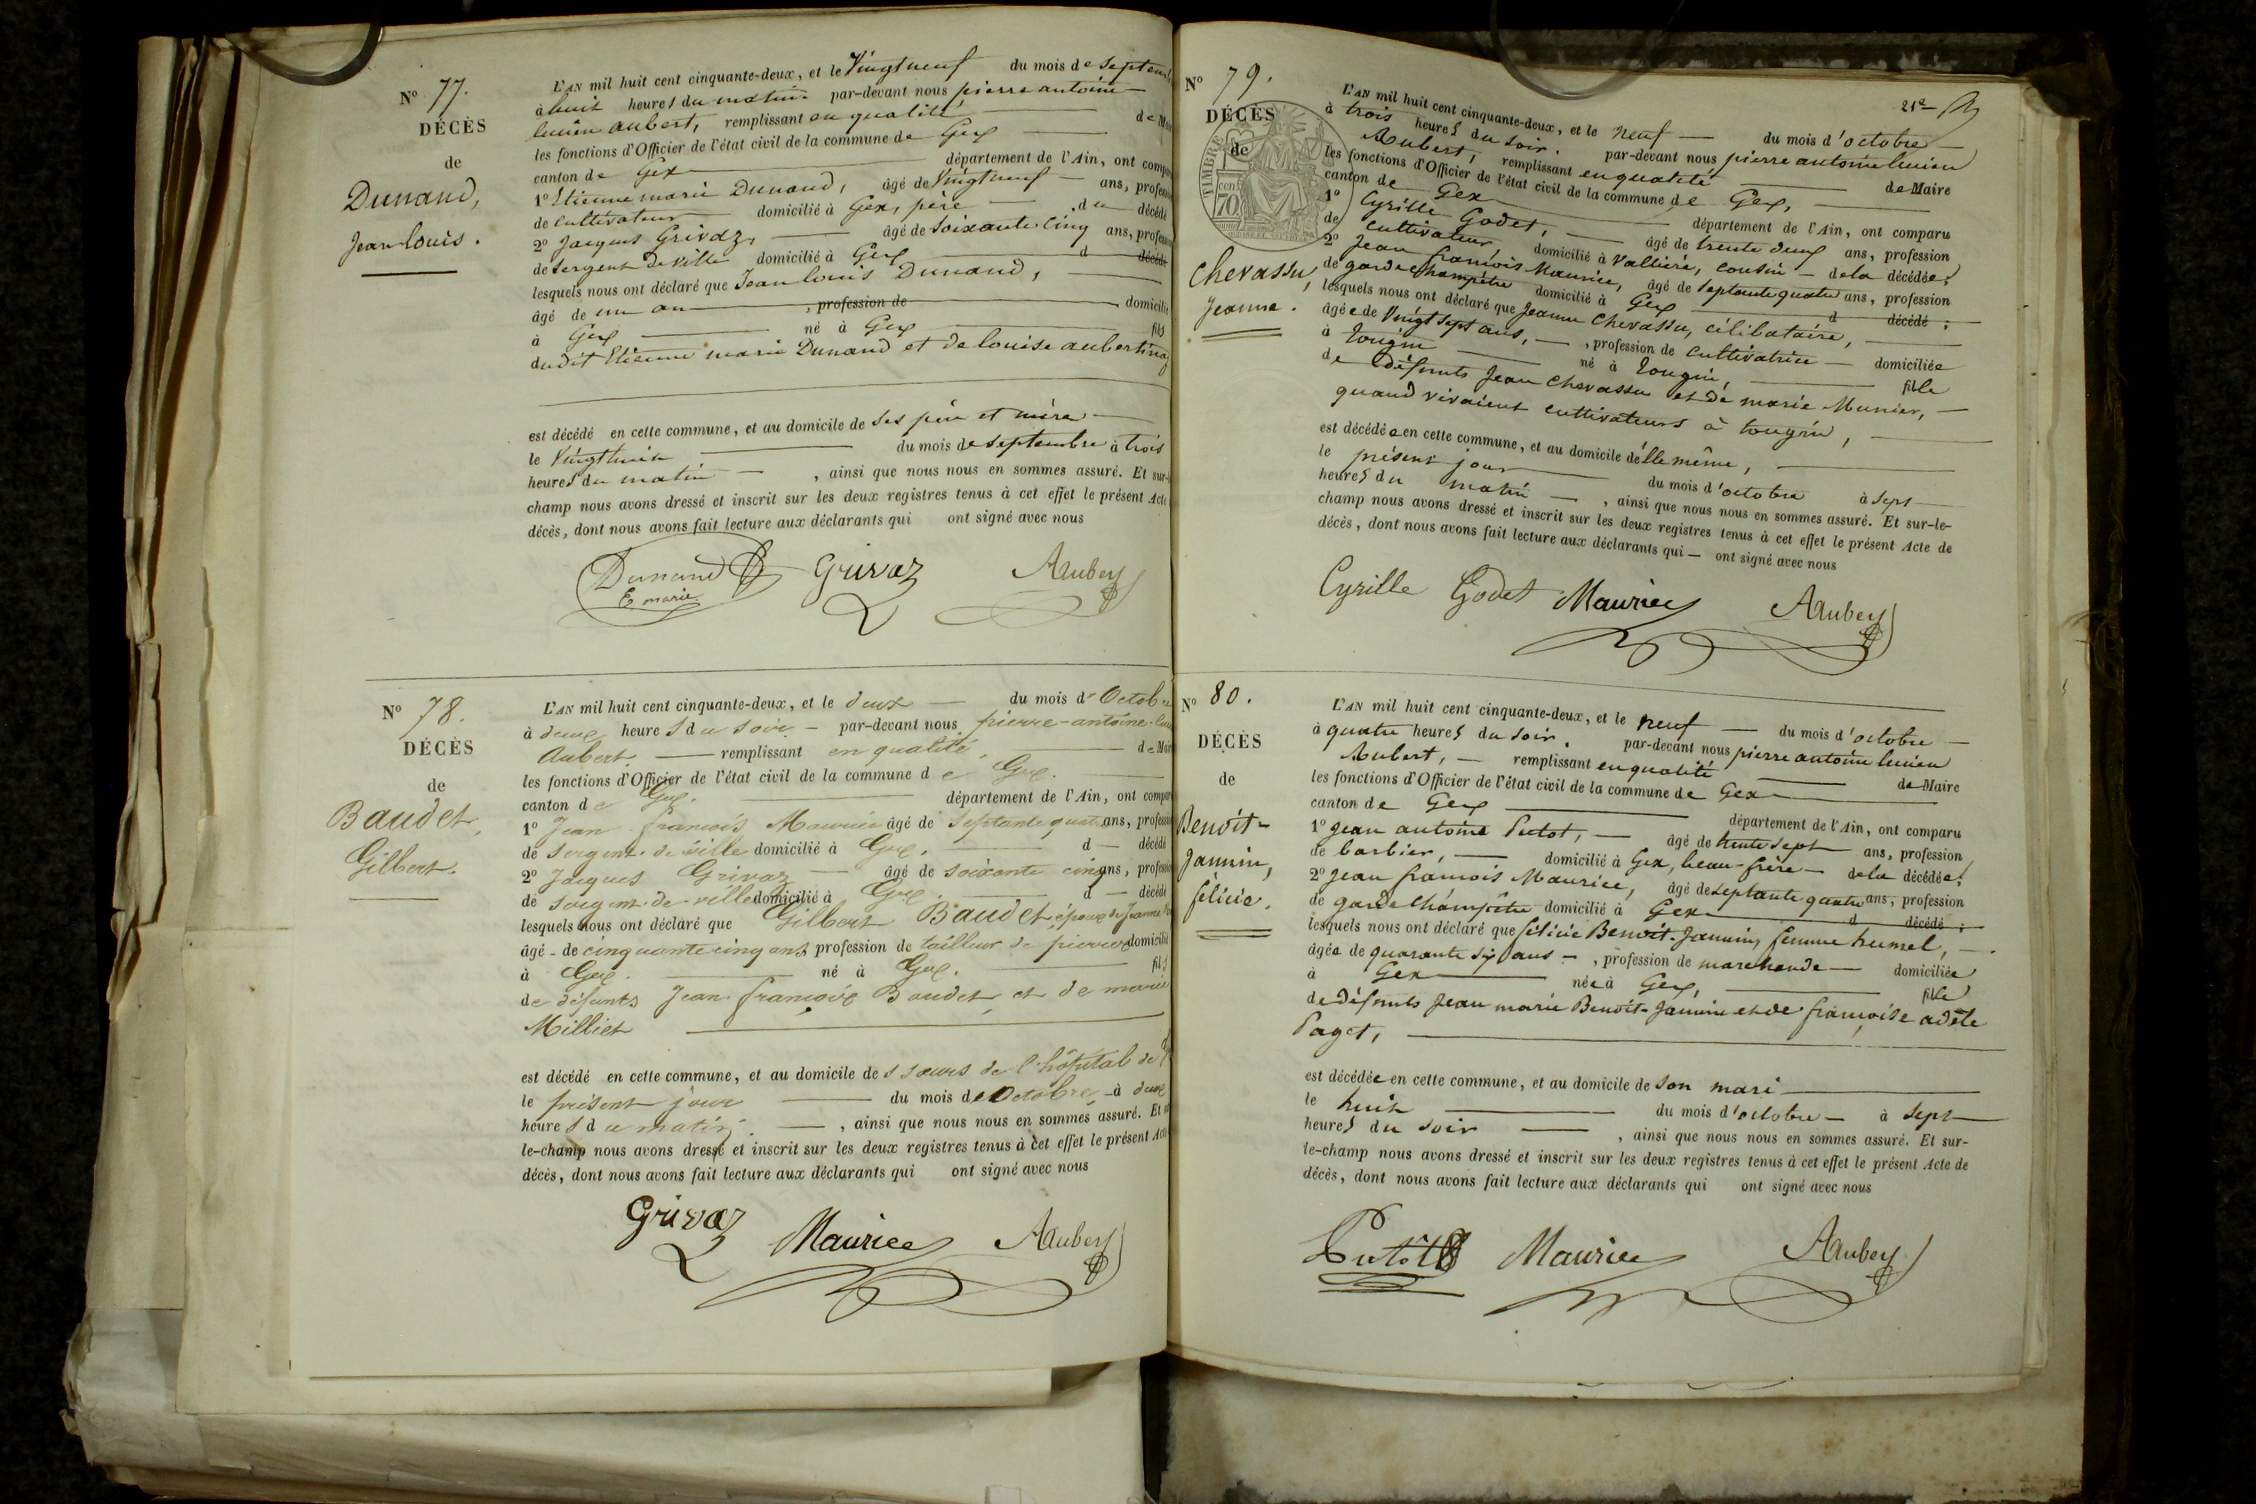 Nº 77.
DÉCÈS
de
Dunand,
Jean louis.
L'AN mil huit cent cinquante-deux, et le Vingtneuf du mois de septem
à huit heures du matin par-devant nous pierre antoine
lucien aubert, remplissant en qualité de M
les fonctions d'Officier de l'état civil de la commune de Gex
canton de Gex département de l'Ain, ont compa
1º Etienne marie Dunand, âgé de Vingtneuf ans, profess
de cultivateur domicilié à Gex, père du décédé
2º Jacques Grivaz, âgé de soixante cinq ans, profess
de sergent de ville domicilié à Gex d décédé
lesquels nous ont déclaré que Jean louis Dunand,
âgé de un an , profession de domicilié
à Gex né à Gex fils
dudit Etienne marie Dunand et de louise
est décédé en cette commune, et au domicile de ses père et mère
le Vingthuit du mois de septembre à trois
heures du matin , ainsi que nous nous en sommes assuré. Et sur-
champ nous avons dressé et inscrit sur les deux registres tenus à cet effet le présent Acte
décès, dont nous avons fait lecture aux déclarants qui ont signé avec nous
Dunand Grivaz AAubert
E marie
Nº 78.
DÉCÈS
de
Baudet,
Gilbert.
L'AN mil huit cent cinquante-deux, et le deux du mois d'Octob
à deux heures du soir par-devant nous pierre-antoine-luc
Aubert remplissant en qualité de Mai
les fonctions d'Officier de l'état civil de la commune de Gex.
canton de Gex. département de l'Ain, ont compar
1º Jean françois Maurice âgé de septante quatre ans, profess
de sergent de ville domicilié à Gex. d décédé
2º Jacques Grivaz âgé de soixante cinq ans, profess
de sergent de ville domicilié à Gex. d décédé
lesquels nous ont déclaré que Gilbert Baudet, époux de Jeanne
âgé de cinquante cinq ans profession de tailleur de pierres domicilié
à Gex. né à Gex. fils
de défunts Jean françois Baudet, et de marie
Milliet
est décédé en cette commune, et au domicile des sœurs de l'hôpital de
le présent jour du mois de Octobre à deux
heures du matin , ainsi que nous nous en sommes assuré. Et
le-champ nous avons dressé et inscrit sur les deux registres tenus à cet effet le présent Acte
décès, dont nous avons fait lecture aux déclarants qui ont signé avec nous
Grivaz Maurice AAubert
21e
Nº 79.
DÉCÈS
de
TIMBRE
70
Chevassu,
Jeanne.
L'AN mil huit cent cinquante-deux, et le neuf du mois d'octobre
à trois heures du soir. par-devant nous pierre antoine lucien
Aubert, remplissant en qualité de Maire
les fonctions d'Officier de l'état civil de la commune de Gex,
canton de Gex département de l'Ain, ont comparu
1º Cyrille Godet, âgé de trente deux ans, profession
de cultivateur, domicilié à Vallière, cousin de la décédée;
2º Jean françois Maurice, âgé de septante quatre ans, profession
de garde champêtre domicilié à Gex d décédé;
lesquels nous ont déclaré que Jeanne Chevassu, célibataire,
âgée de Vingt sept ans, , profession de cultivatrice domiciliée
à tougin né à tougin, fille
de défunts Jean Chevassu et de marie Munier,
quand vivaient cultivateurs à tougin,
est décédée en cette commune, et au domicile d'elle même,
le présent jour du mois d'octobre à sept
heures du matin , ainsi que nous nous en sommes assuré. Et sur-le-
champ nous avons dressé et inscrit sur les deux registres tenus à cet effet le présent Acte de
décès, dont nous avons fait lecture aux déclarants qui ont signé avec nous
Cyrille Godet Maurice AAubert
Nº 80.
DÉCÈS
de
Benoît-
Jannin,
félicie.
L'AN mil huit cent cinquante-deux, et le neuf du mois d'octobre
à quatre heures du soir. par-devant nous pierre antoine lucien
Aubert, remplissant en qualité de Maire
les fonctions d'Officier de l'état civil de la commune de Gex
canton de Gex département de l'Ain, ont comparu
1º jean antoine Putot, âgé de trente sept ans, profession
de barbier, domicilié à Gex, beau-frère de la décédée;
2º jean françois Maurice, âgé de septante quatre ans, profession
de garde champêtre domicilié à Gex d décédé;
lesquels nous ont déclaré que félicie Benoît-Jannin, femme humel,
âgée de quarante six ans , profession de marchande domiciliée
à Gex née à Gex, fille
de défunts Jean marie Benoît-Jannin et de françoise adèle
Paget,
est décédée en cette commune, et au domicile de son mari
le huit du mois d'octobre à sept
heures du soir , ainsi que nous nous en sommes assuré. Et sur-
le-champ nous avons dressé et inscrit sur les deux registres tenus à cet effet le présent Acte de
décès, dont nous avons fait lecture aux déclarants qui ont signé avec nous
Putot Maurice AAubert